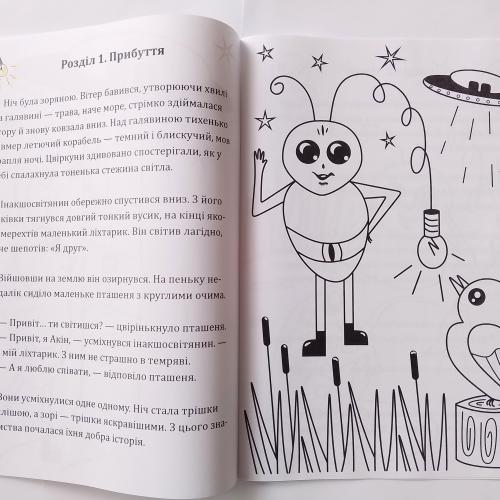 Розділ 1. Прибуття
Ніч була зоряною. Вітер бавився, утворюючи хвилі
галявині — трава, наче море, стрімко здіймалася
ору й знову ковзала вниз. Над галявиною тихенько
вмер летючий корабель — темний і блискучий, мов
апля ночі. Цвіркуни здивовано спостерігали, як у
ебі спалахнула тоненька стежина світла.
Інакшосвітянин обережно спустився вниз. З його
ківки тягнувся довгий тонкий вусик, на кінці яко-
мерехтів маленький ліхтарик. Він світив лагідно,
че шепотів: «Я друг».
Війшовши на землю він озирнувся. На пеньку не-
далік сиділо маленьке пташеня з круглими очима.
— Привіт... ти світишся? — цвірінькнуло пташеня.
— Привіт, я Акін, — усміхнувся інакшосвітянин. —
мій ліхтарик. З ним не страшно в темряві.
— А я люблю співати, — відповіло пташеня.
Вони усміхнулися одне одному. Ніч стала трішки
лішою, а зорі — трішки яскравішими. З цього зна-
мства почалася їхня добра історія.